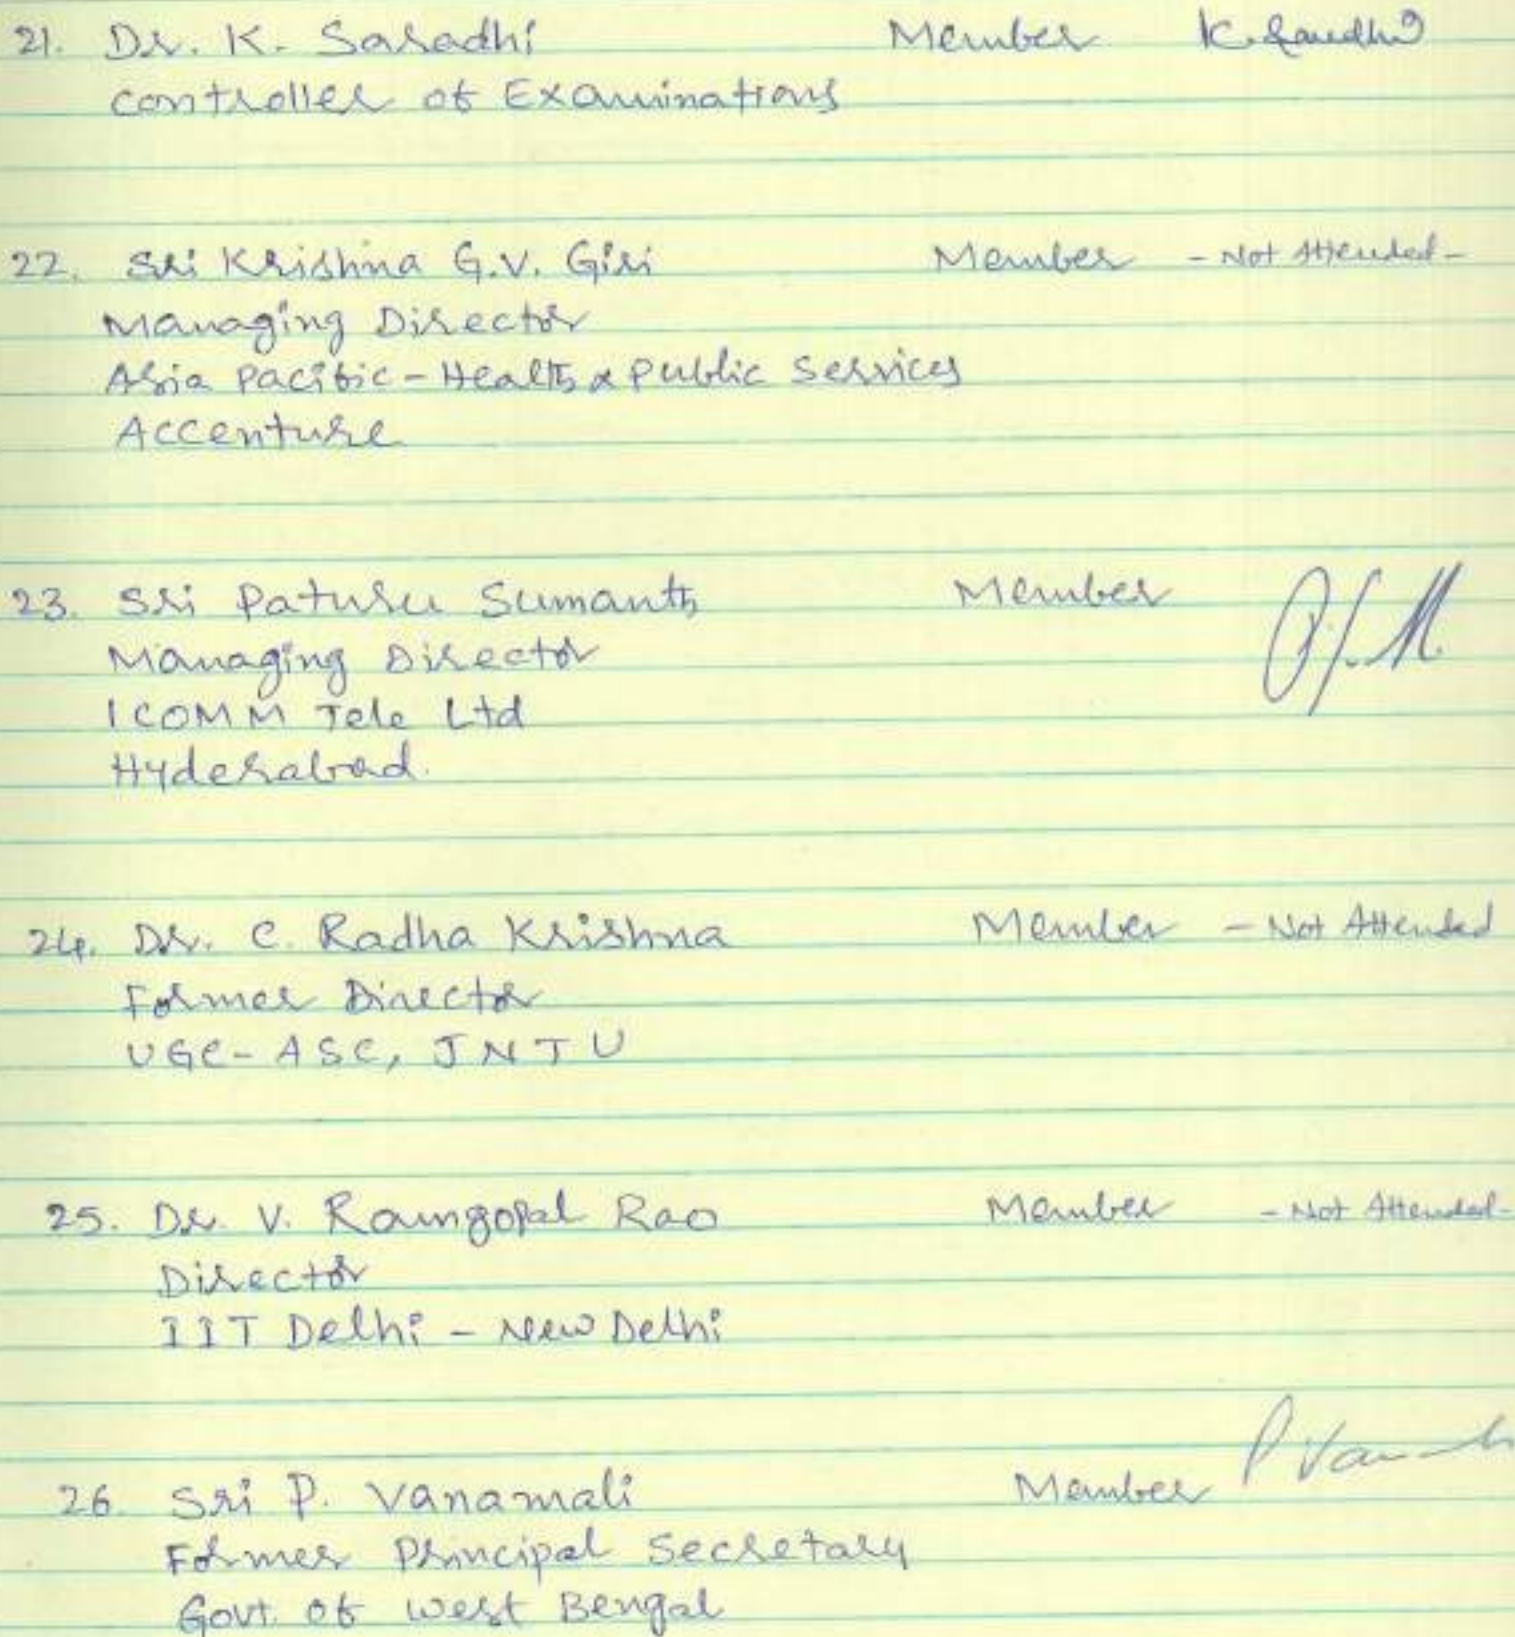 21. Dr. K. Saradhi Member K. Saradhi
Controller of Examinations
22. Sri Krishna G.V. Giri Member - Not Attended -
Managing Director
Asia Pacific - Health & Public Services
Accenture
23. Sri Paturu Sumanth Member
Managing Director
ICOMM Tele Ltd
Hyderabad.
24. Dr. C. Radha Krishna Member - Not Attended
Former Director
UGC - ASC, JNTU
25. Dr. V. Ramgopal Rao Member - Not Attended -
Director
IIT Delhi - New Delhi
26. Sri P. Vanamali Member
Former Principal Secretary
Govt. of West Bengal